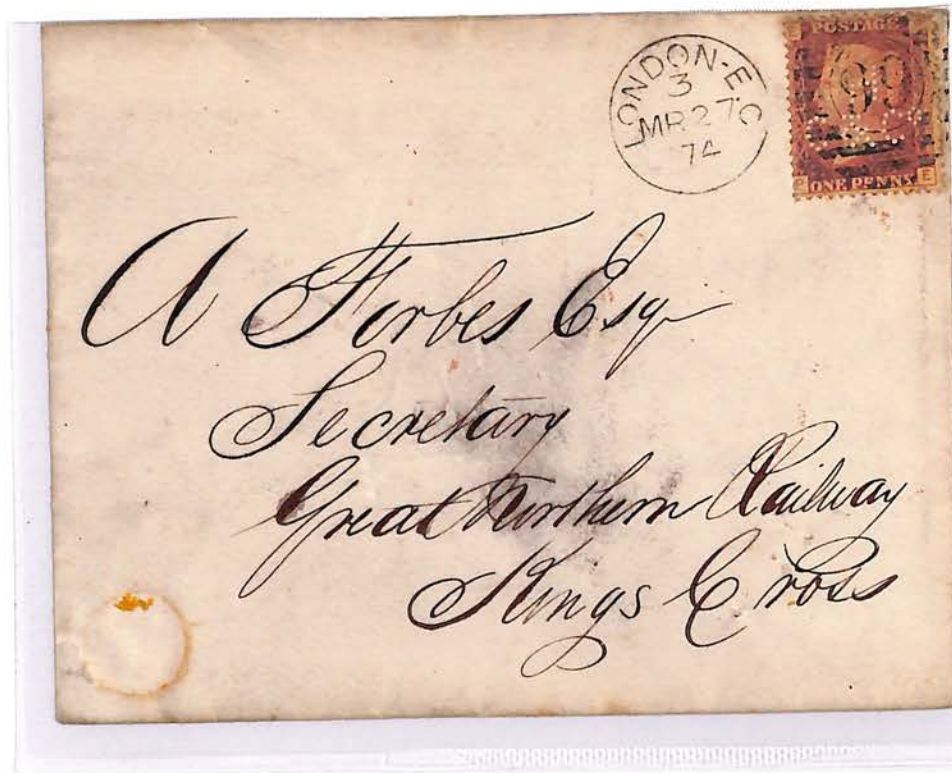 LONDON-E.C
3
MR 27
74
POSTAGE
99
ONE PENNY
E
A Forbes Esq
Secretary
Great Northern Railway
Kings Cross